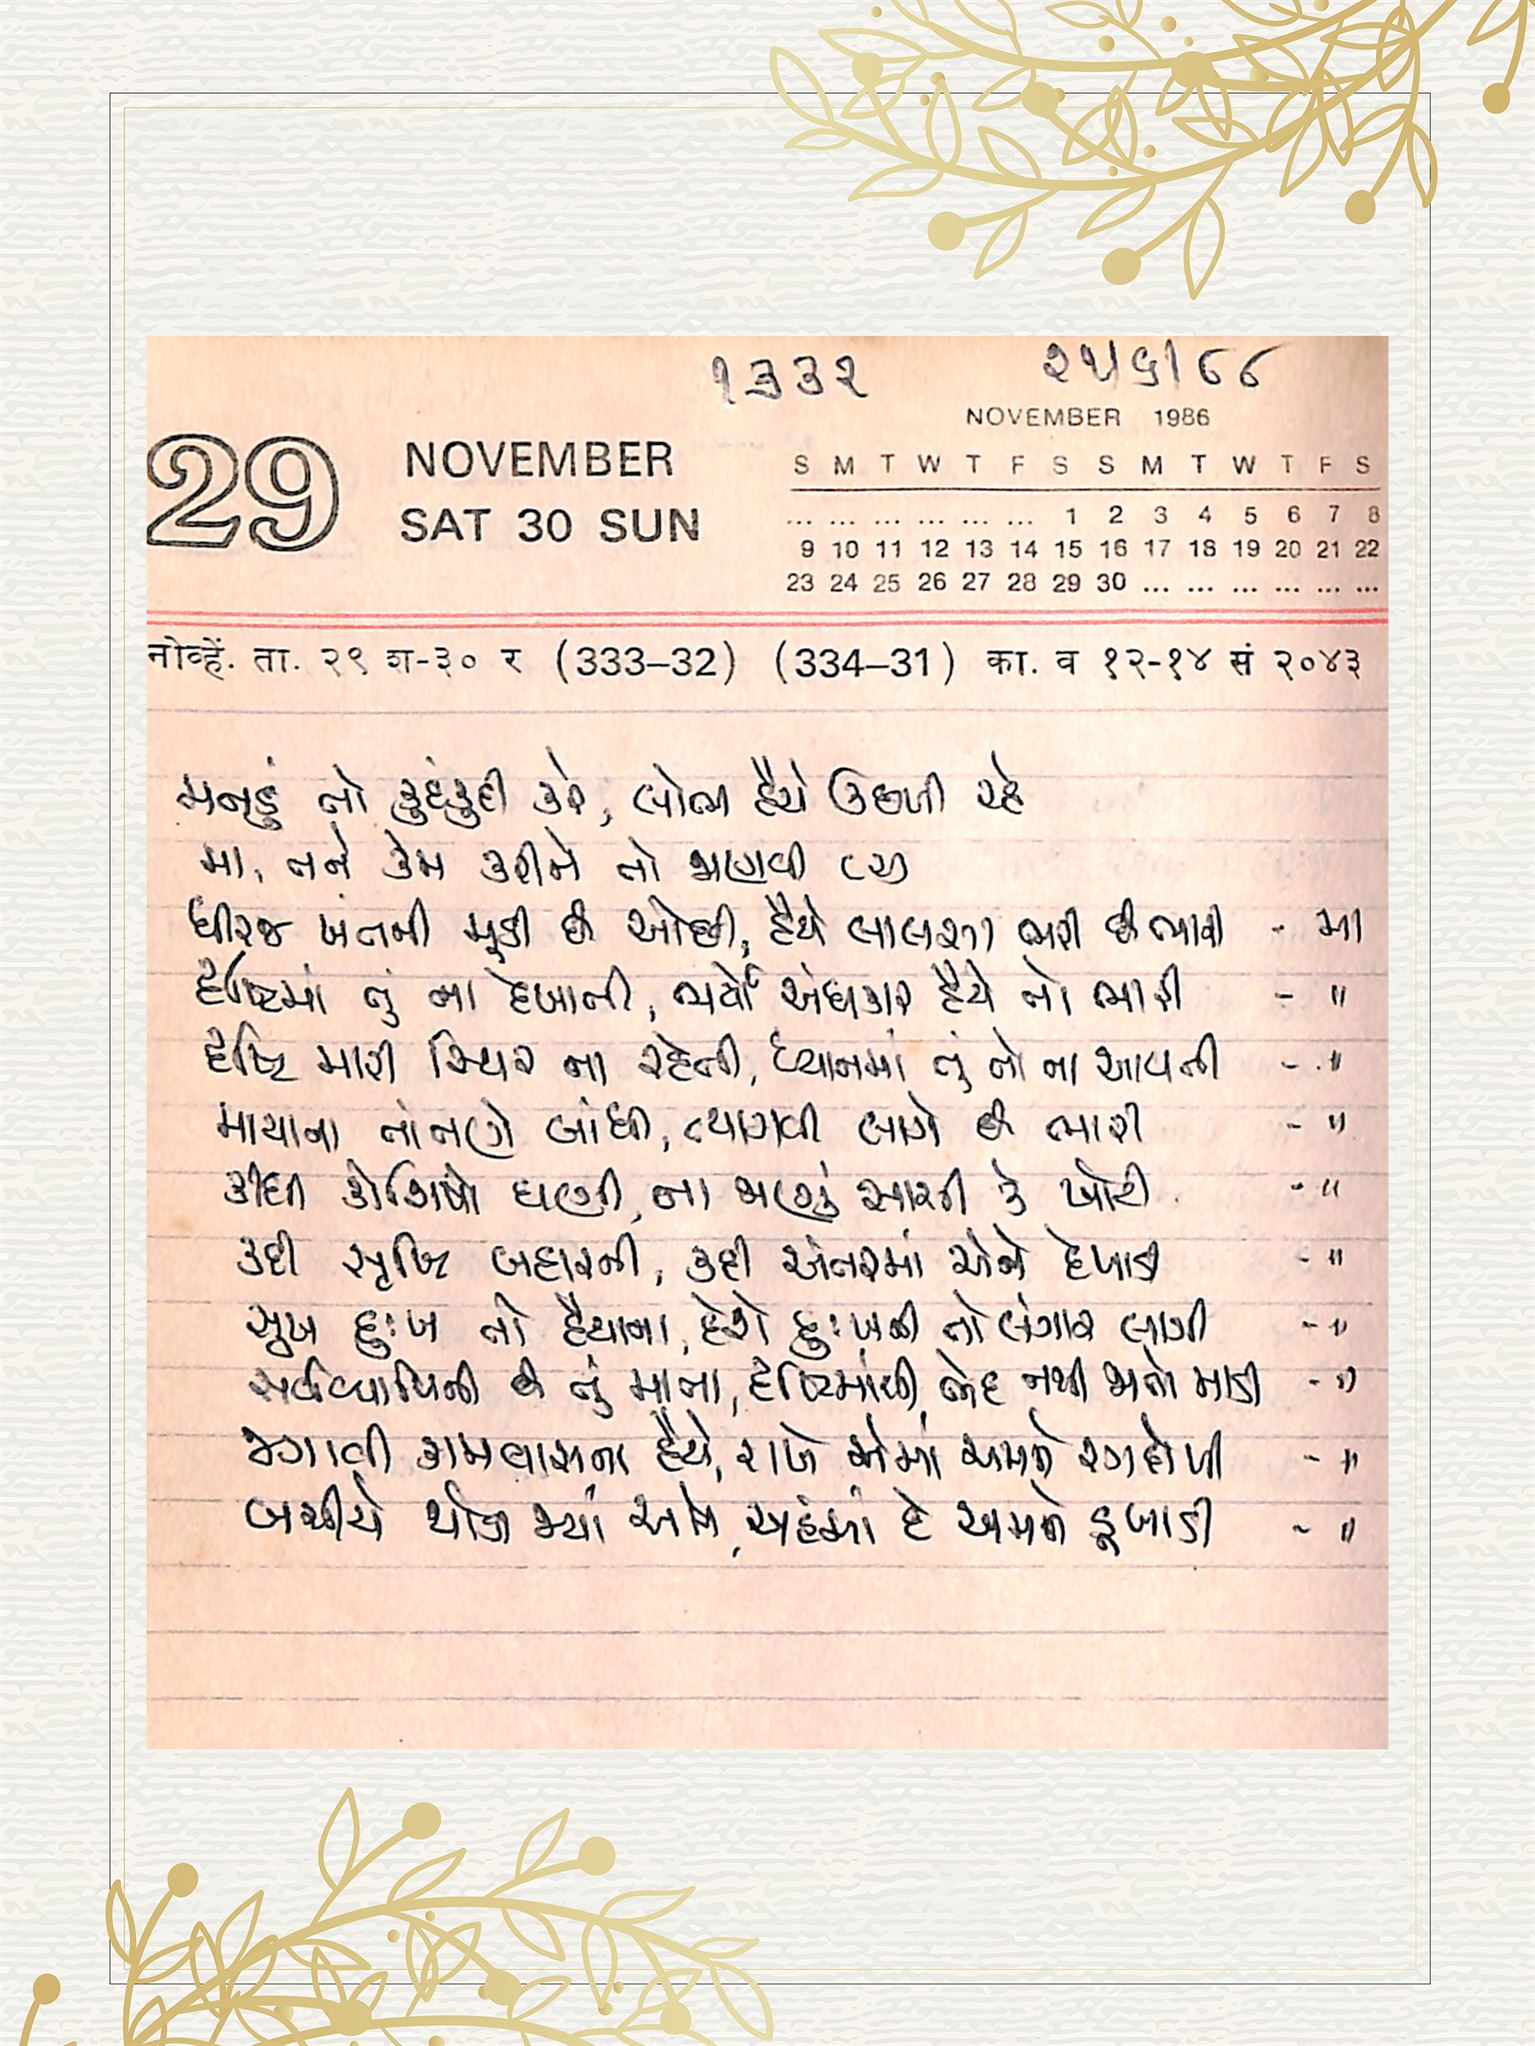 ૧૩૩૨ ૨૫૬/૮૮
NOVEMBER 1986
29 NOVEMBER
SAT 30 SUN
S M T W T F S S M T W T F S
... ... ... ... ... ... 1 2 3 4 5 6 7 8
9 10 11 12 13 14 15 16 17 18 19 20 21 22
23 24 25 26 27 28 29 30 ... ... ... ... ... ...
नोव्हें. ता. २९ श-३० र (333–32) (334–31) का. व १२-१४ सं २०४३
મનડું તો કુદંકુદી કરે, લોભ હૈયે ઉછળી રહે
મા, તને કેમ કરીને તો જાણવી
ધીરજ ખંતની મૂડી છે ઓછી, હૈયે લાલસા ભરી છે ભારી - મા
દૃષ્ટિમાં તું ના દેખાતી, ભર્યો અંધકાર હૈયે તો ભારી - "
દૃષ્ટિ મારી સ્થિર ના રહેતી, ધ્યાનમાં તું તો ના આવતી - "
માયાના તાંતણે બાંધી, ત્યાગવી લાગે છે ભારી - "
કીધી કોશિષો ઘણી, ના જાણું સાચી કે ખોટી - "
કદી સૃષ્ટિ બહારની, કદી અંતરમાં એને દેખાડી - "
સુખ દુઃખ તો હૈયાના, દેશે દુઃખની તો લંગાર લાગી - "
સર્વવ્યાપિની છે તું માતા, દૃષ્ટિમાંથી ભેદ નથી જાતો માડી - "
જગાવી કામવાસના હૈયે, રાખે એમાં અમને રગદોળી - "
બચીયે થોડા જ્યાં અમે, અહંમાં દે અમને ડૂબાડી - "